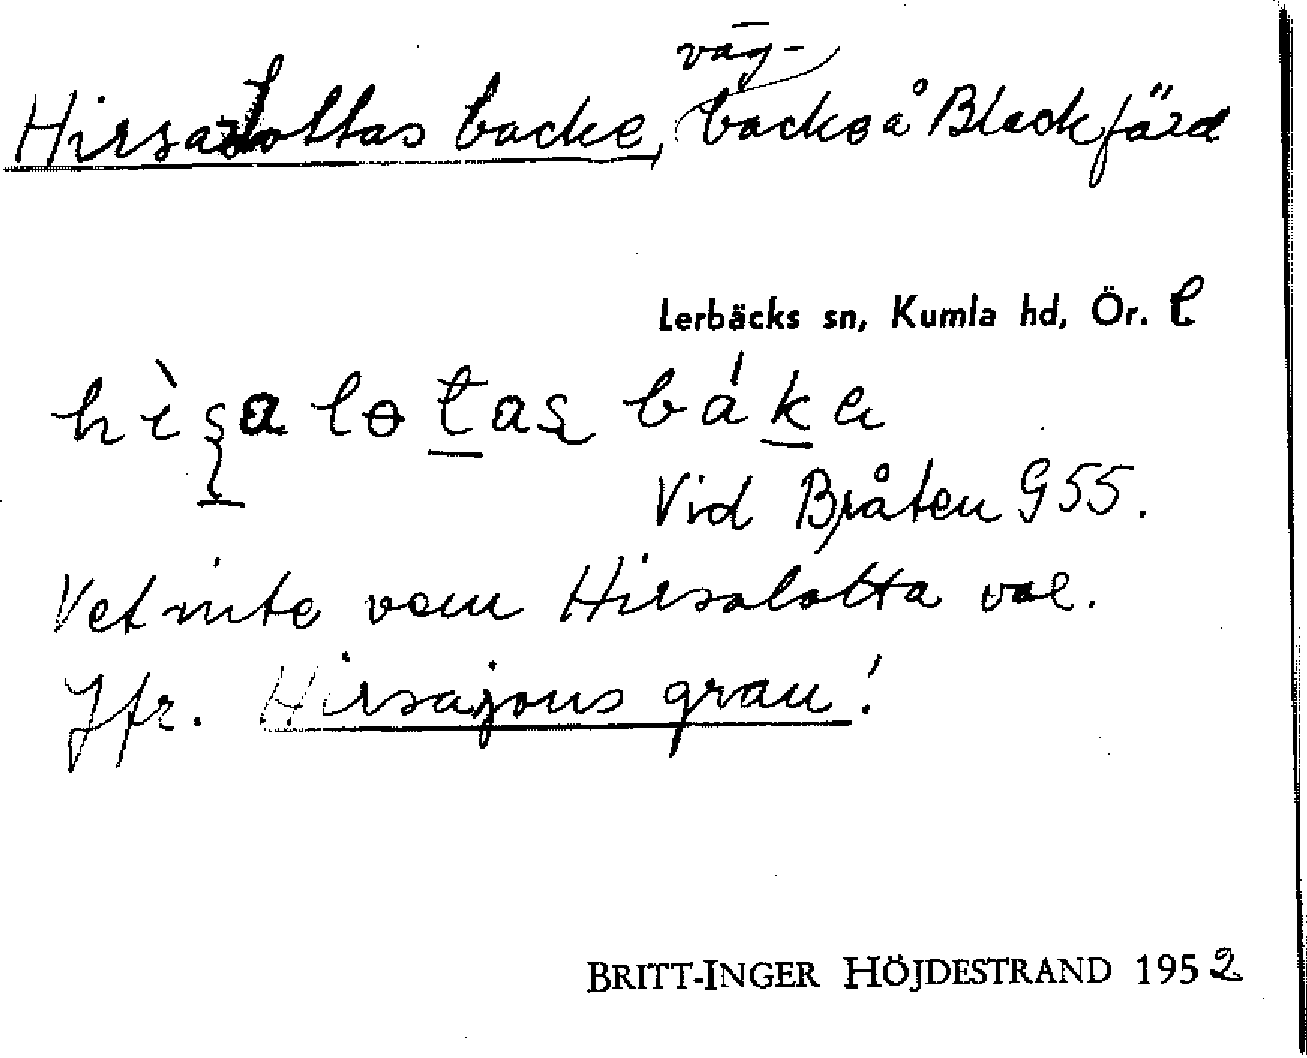 Hirsalottas backe, väg-backe å Blackfärd
Lerbäcks sn, Kumla hd, Ör. l
hìsa lɵtas báka
Vid Bråten G55.
Vet inte vem Hirsalotta var.
Jfr. Hirsajons grav!
BRITT-INGER HÖJDESTRAND 1952